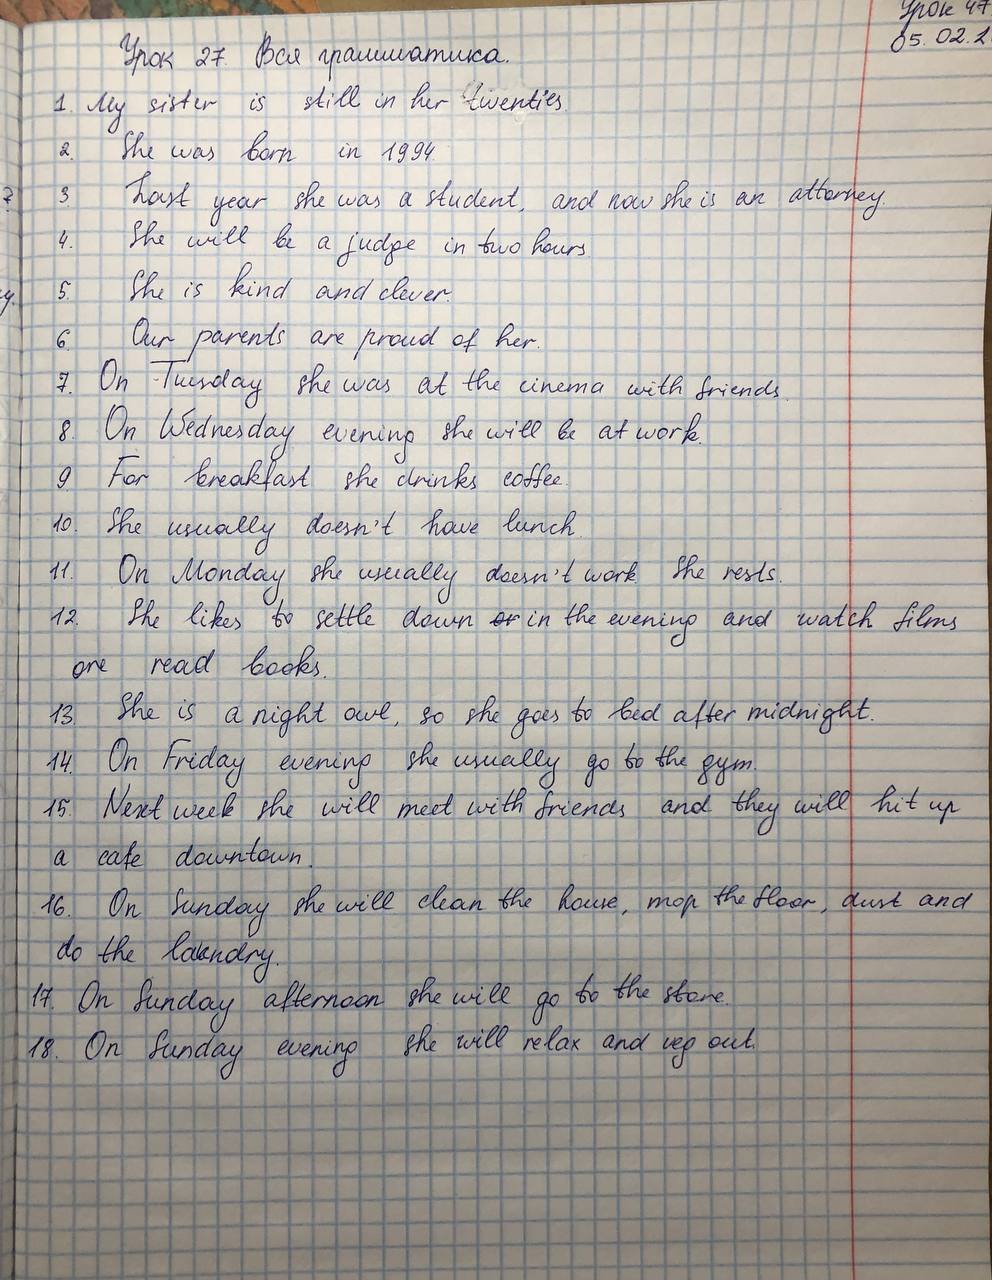 Урок 47
05.02.2
Урок 27. Вся грамматика.
1. My sister is still in her twenties.
2. She was born in 1994.
3. Last year she was a student, and now she is an attorney.
4. She will be a judge in two hours.
5. She is kind and clever.
6. Our parents are proud of her.
7. On Tuesday she was at the cinema with friends.
8. On Wednesday evening she will be at work.
9. For breakfast she drinks coffee.
10. She usually doesn't have lunch.
11. On Monday she usually doesn't work. She rests.
12. She likes to settle down or in the evening and watch films
ore read books.
13. She is a night owl, so she goes to bed after midnight.
14. On Friday evening she usually go to the gym.
15. Next week she will meet with friends and they will hit up
a cafe downtown.
16. On Sunday she will clean the house, mop the floor, dust and
do the laundry.
17. On Sunday afternoon she will go to the store.
18. On Sunday evening she will relax and veg out.